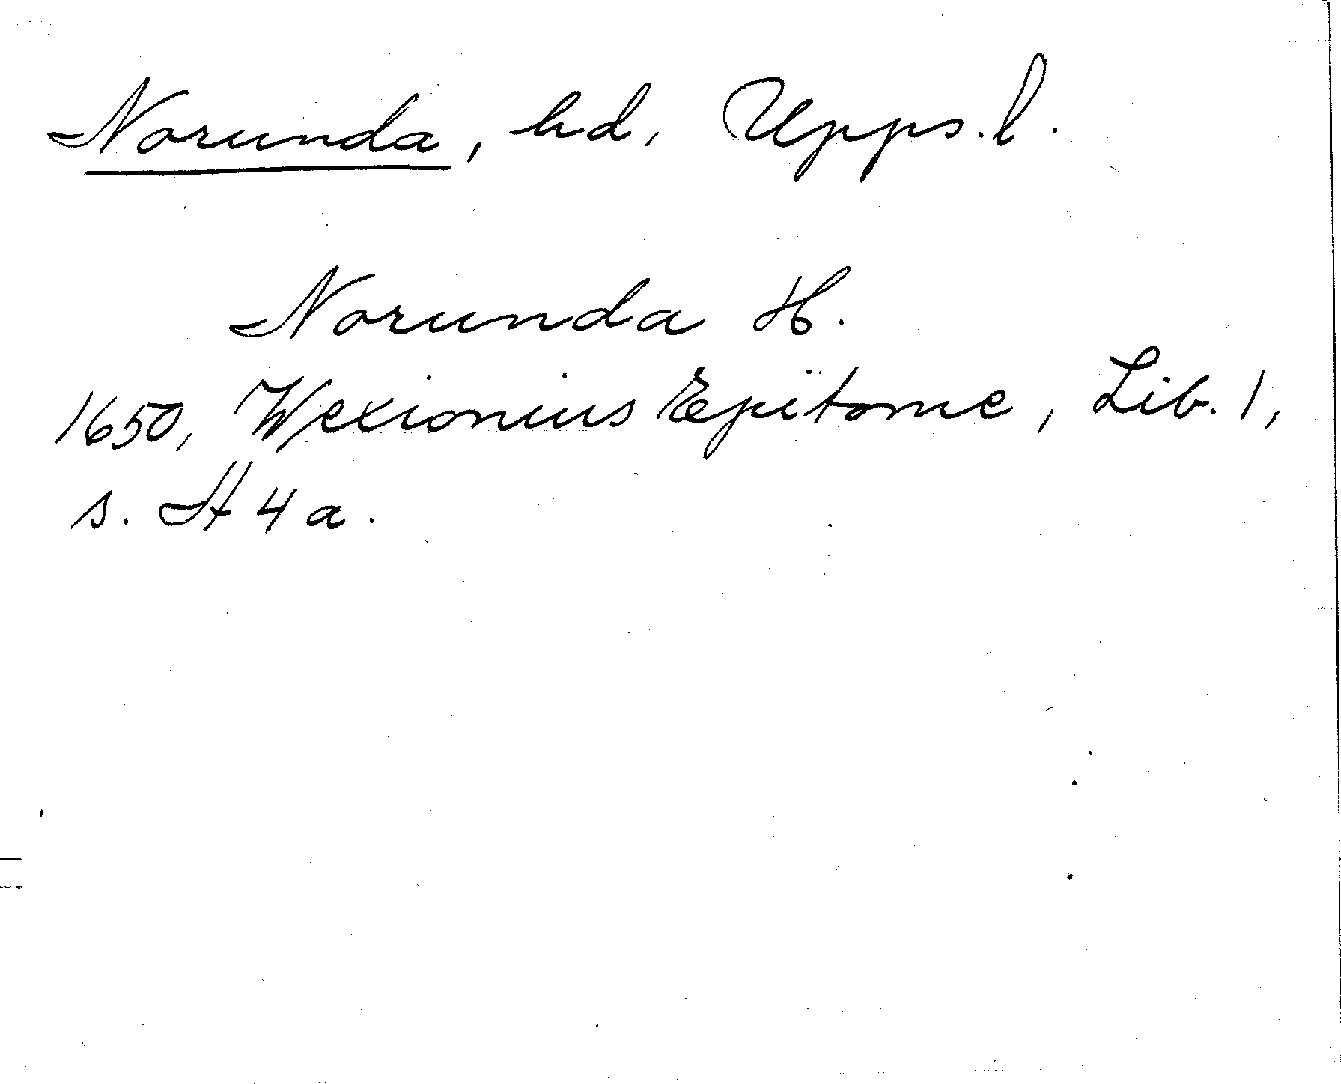 Norunda, hd, Upps. l.
Norunda H.
1650, Wexionius Epitome, Lib. 1,
s. H 4 a.